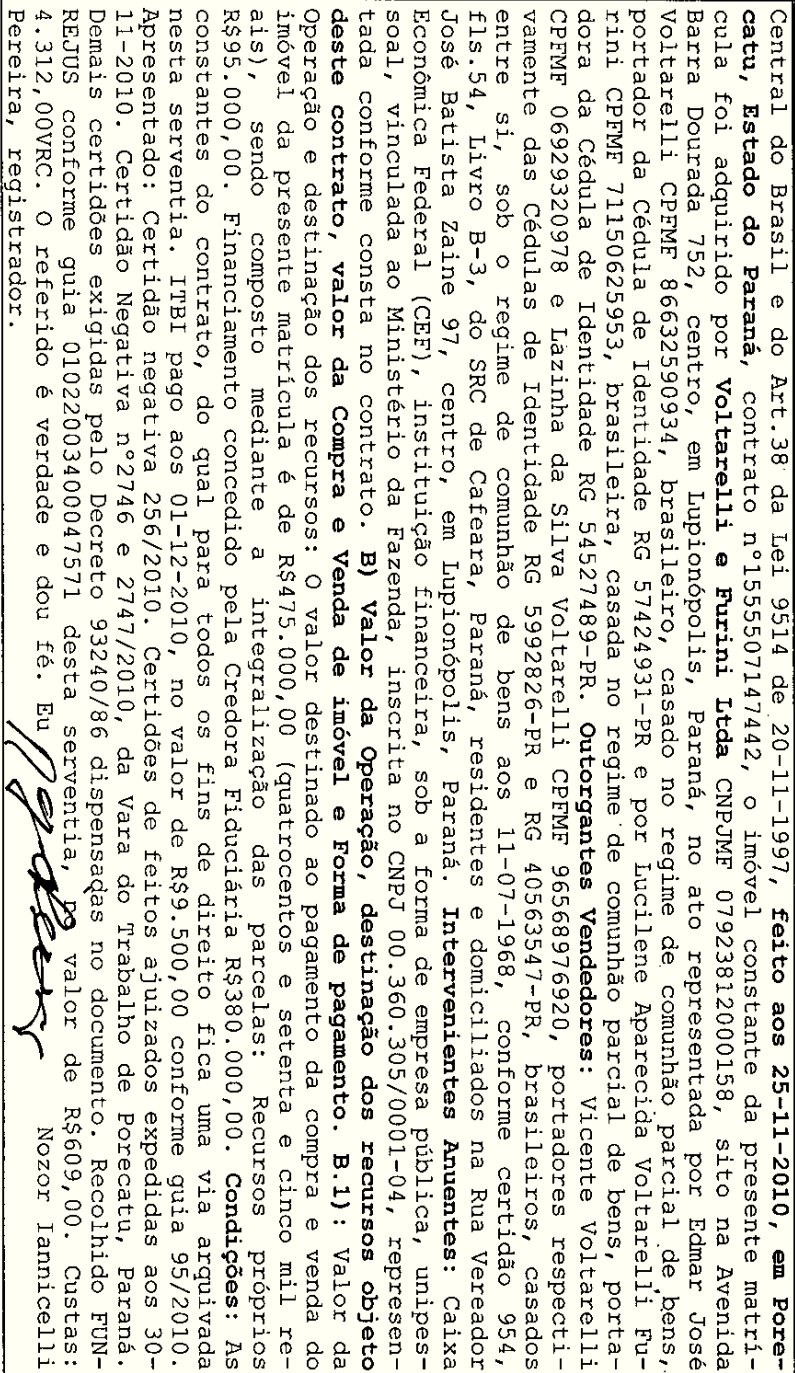 Central do Brasil e do Art.38 da Lei 9514 de 20-11-1997, feito aos 25-11-2010, em Pore-
catu, Estado do Paraná, contrato n°155550714744­2, o imóvel constante da presente matrí-
cula foi adquirido por Voltarelli e Furini Ltda CNPJMF 07923812000158, sito na Avenida
Barra Dourada 752, centro, em Lupionópolis, Paraná, no ato representada por Edmar José
Voltarelli CPFMF 86632590934, brasileiro, casado no regime de comunhão parcial de bens,
portador da Cédula de Identidade RG 57424931-PR e por Lucilene Aparecida Voltarelli Fu-
rini CPFMF 71150625953, brasileira, casada no regime de comunhão parcial de bens, porta-
dora da Cédula de Identidade RG 54527489-PR. Outorgantes Vendedores: Vicente Voltarelli
CPFMF 06929320978 e Lazinha da Silva Voltarelli CPFMF 96568976920, portadores respecti-
vamente das Cédulas de Identidade RG 5992826-PR e RG 40563547-PR, brasileiros, casados
entre si, sob o regime de comunhão de bens aos 11-07-1968, conforme certidão 954,
fls.54, Livro B-3, do SRC de Cafeara, Paraná, residentes e domiciliados na Rua Vereador
José Batista Zaine 97, centro, em Lupionópolis, Paraná. Intervenientes Anuentes: Caixa
Econômica Federal (CEF), instituição financeira, sob a forma de empresa pública, unipes-
soal, vinculada ao Ministério da Fazenda, inscrita no CNPJ 00.360.305/0001-04, represen-
tada conforme consta no contrato. B) Valor da Operação, destinação dos recursos objeto
deste contrato, valor da Compra e Venda de imóvel e Forma de pagamento. B.1): Valor da
Operação e destinação dos recursos: O valor destinado ao pagamento da compra e venda do
imóvel da presente matrícula é de R$475.000,00 (quatrocentos e setenta e cinco mil re-
ais), sendo composto mediante a integralização das parcelas: Recursos próprios
R$95.000,00. Financiamento concedido pela Credora Fiduciária R$380.000,00. Condições: As
constantes do contrato, do qual para todos os fins de direito fica uma via arquivada
nesta serventia. ITBI pago aos 01-12-2010, no valor de R$9.500,00 conforme guia 95/2010.
Apresentado: Certidão negativa 256/2010. Certidões de feitos ajuizados expedidas aos 30-
11-2010. Certidão Negativa n°2746 e 2747/2010, da Vara do Trabalho de Porecatu, Paraná.
Demais certidões exigidas pelo Decreto 93240/86 dispensadas no documento. Recolhido FUN-
REJUS conforme guia 01022003400047571 desta serventia, no valor de R$609,00. Custas:
4.312,00VRC. O referido é verdade e dou fé. Eu Nozor Iannicelli
Pereira, registrador.